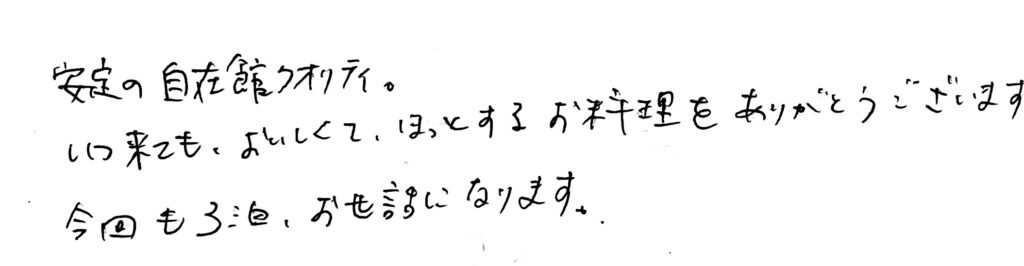 安定の自在館クオリティ。
いつ来ても、おいしくて、ほっとするお料理をありがとうございます
今回も3泊、お世話になります。